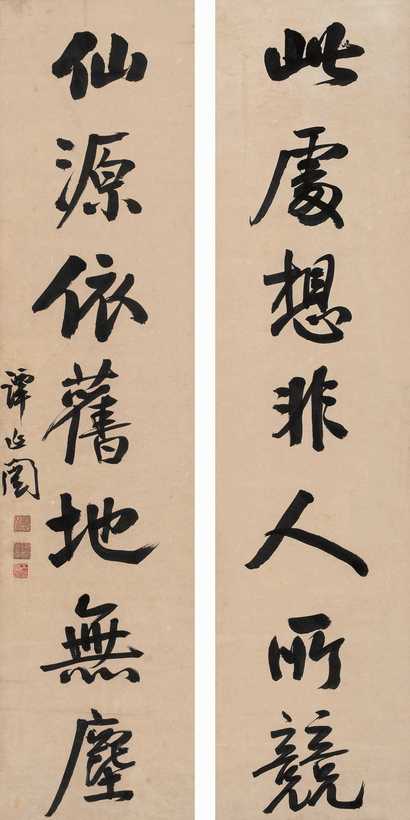 此處想非人所競
仙源依舊地無塵
譚延闿